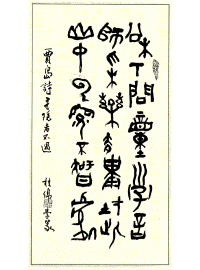 松下問童子言
師采藥去只在此
山中雲深不知處
賈島詩尋隱者不遇